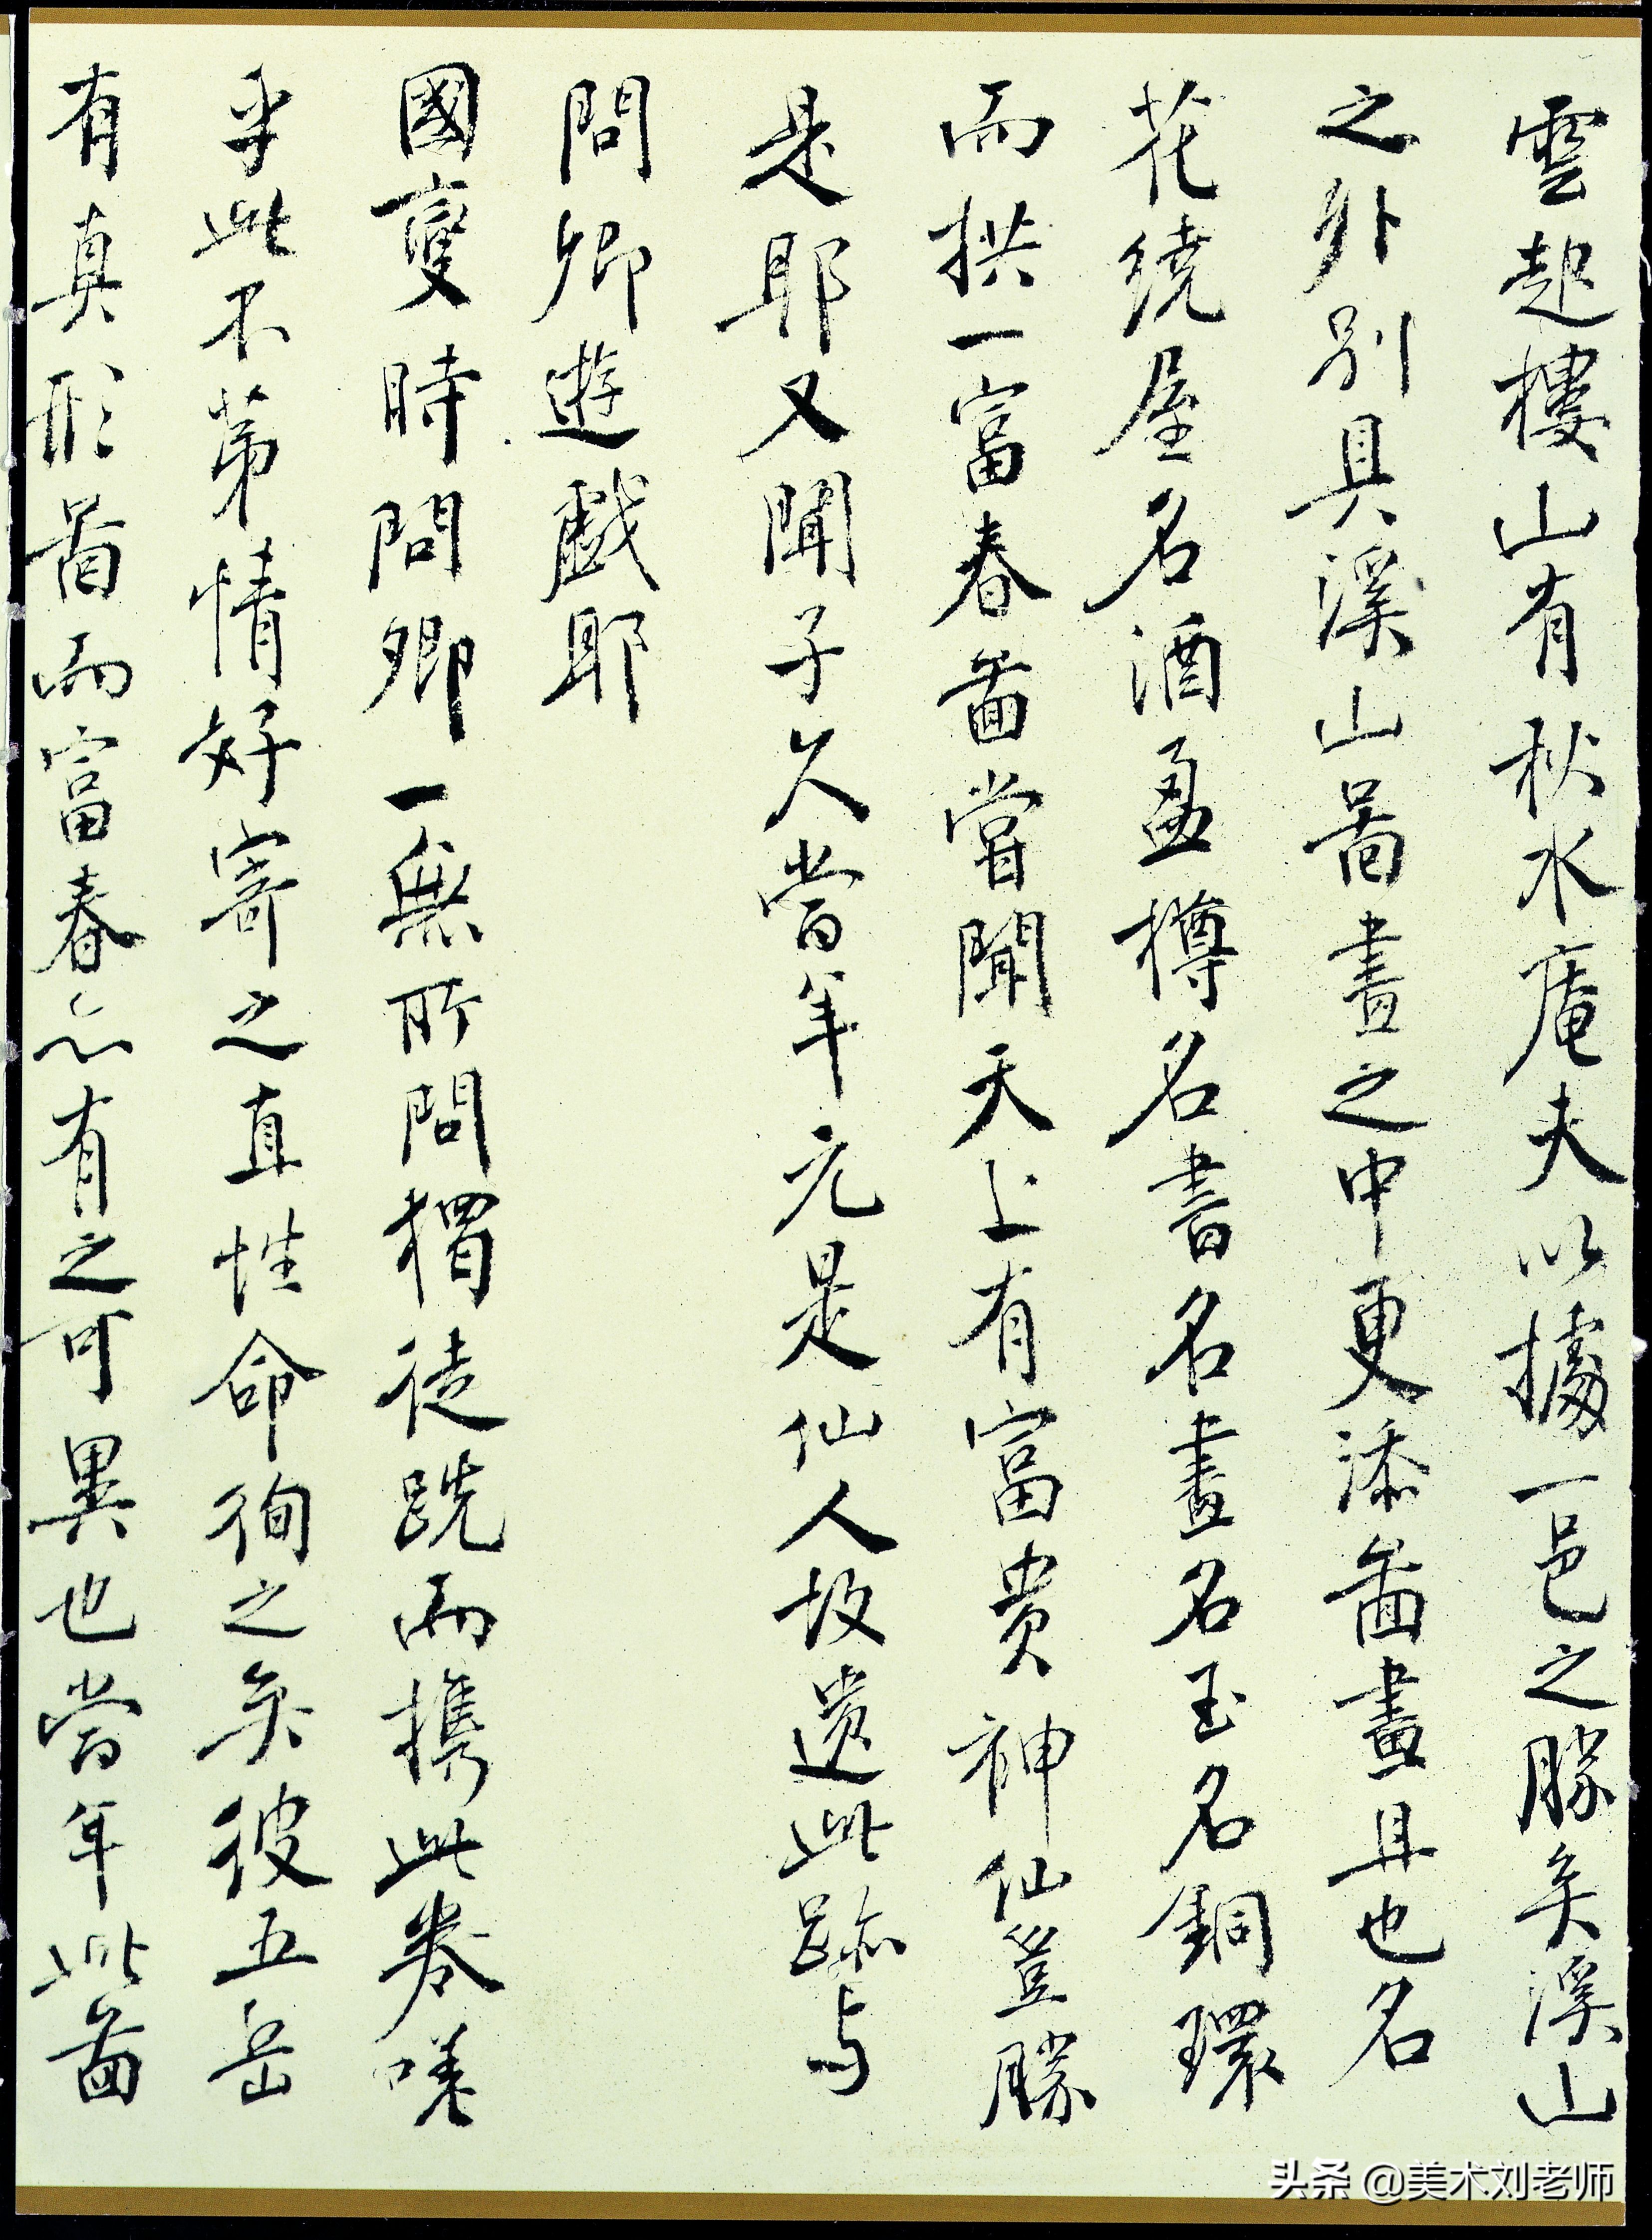 雲起樓山有秋水庵夫以擄一邑之勝矣溪山
之外別具溪山啚畫之中更添啚畫且也名
花繞屋名酒盈樽名書名畫名玉名銅環
而拱一富春啚嘗聞天上有富貴神仙豈勝
是耶又聞子久當年元是仙人故遺此跡与
問卿遊戲耶
國變時問卿一無所問獨徒跣而攜此卷嗟
乎此不第情好寄之直性命徇之矣彼五岳
有真形啚而富春亦有之可異也當年此啚
头条 @美术刘老师